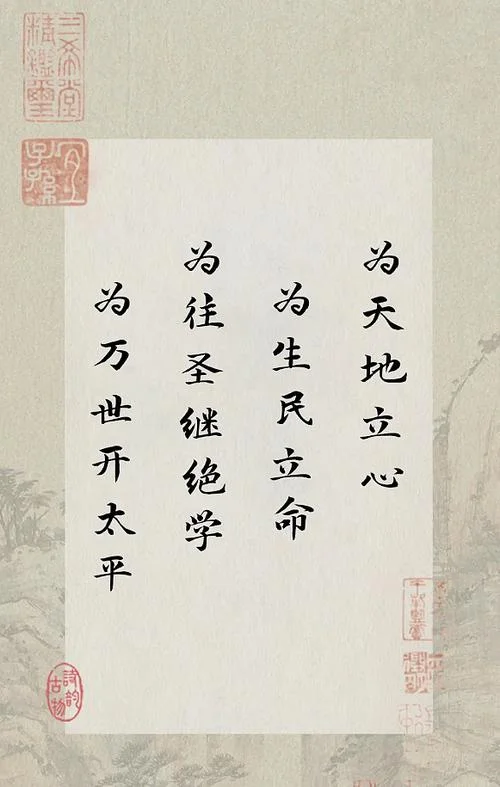 为天地立心
为生民立命
为往圣继绝学
为万世开太平
三希堂
精鑑玺
宜子孙
诗韵
古物